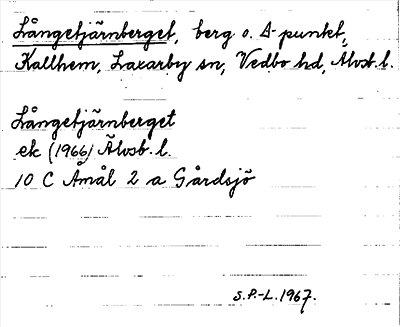 Långetjärnberget, berg o. Δ-punkt,
Kallhem, Laxarby sn, Vedbo hd, Älvsb. l.
Långetjärnberget
ek (1966) Älvsb. l.
10 C Åmål 2 a Gårdsjö
S.P.-L. 1967.